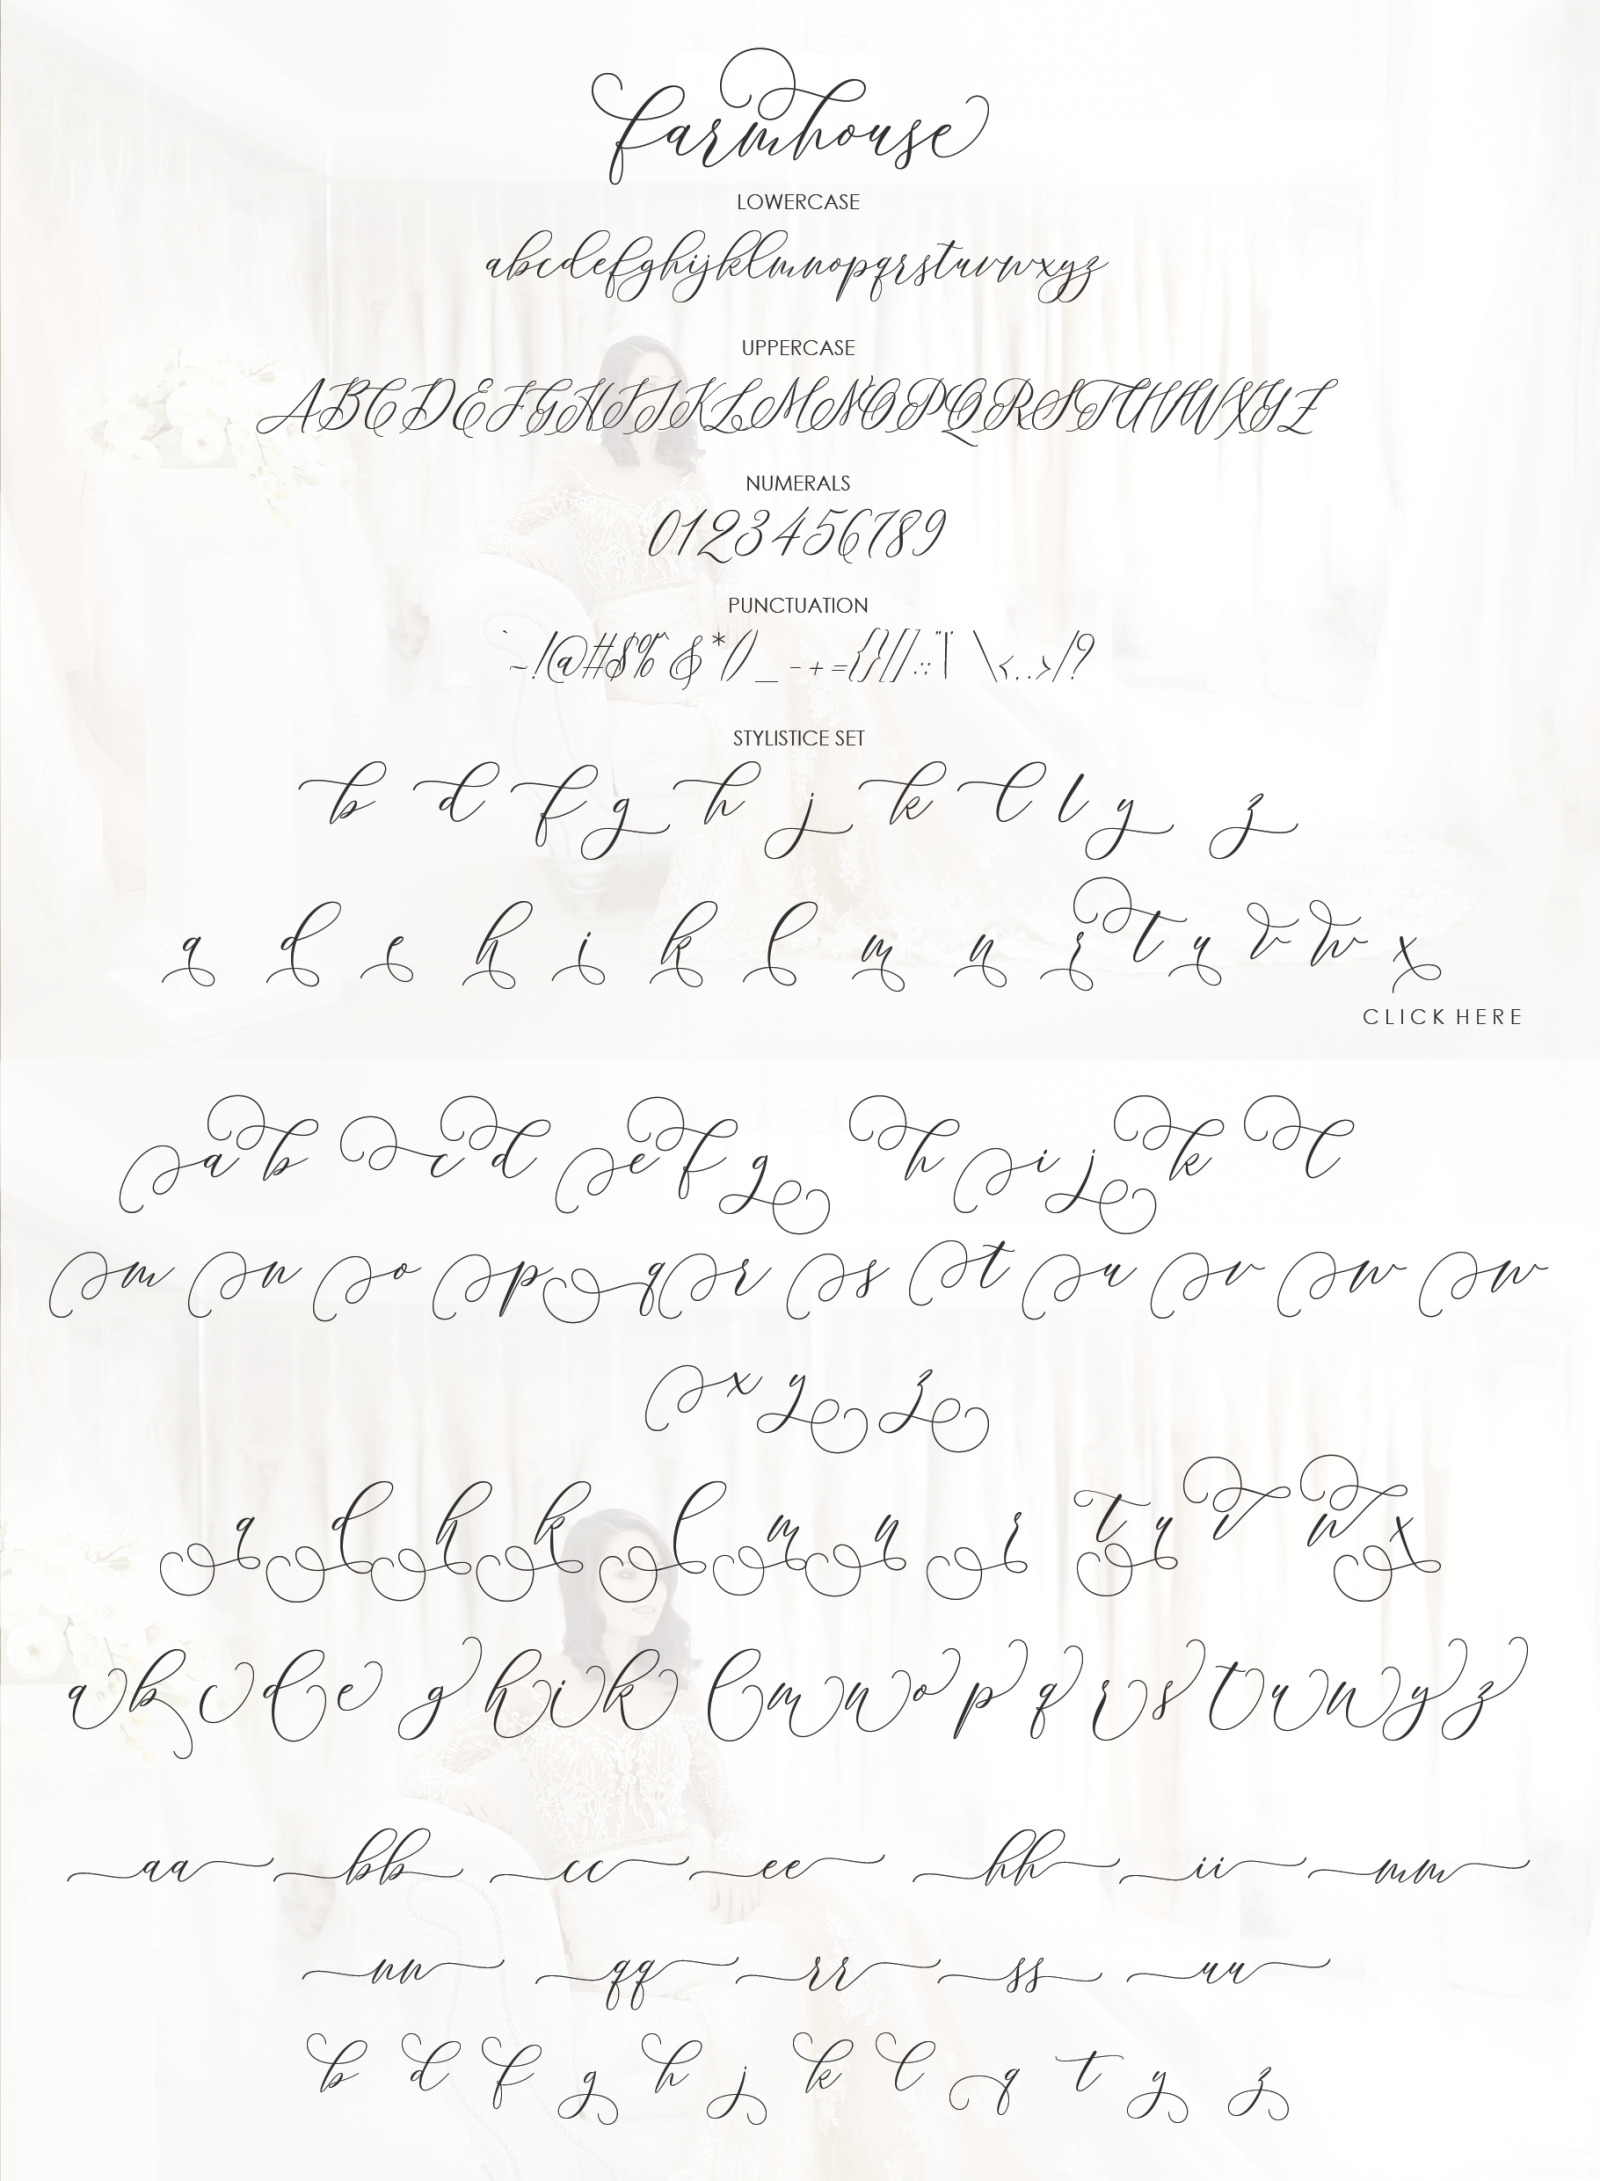 farmhouse
LOWERCASE
abcdefghijklmnopqrstuvwxyz
UPPERCASE
ABCDEFGHIJKLMNOPQRSTUVWXYZ
NUMERALS
0123456789
PUNCTUATION
`~!@#$%^&*()_-+={}[]:;"'|\<,.>/?
STYLISTICE SET
b d f g h j k l l y z
a d e h i k l m n r t u v w x
CLICK HERE
a b c d e f g h i j k l
m n o p q r s t u v w w
x y z
a d h k l m n r t u v w x
a b c d e g h i k l m n o p q r s t u w y z
aa bb cc ee hh ii mm
nn qq rr ss uu
b d f g h j k l q t y z